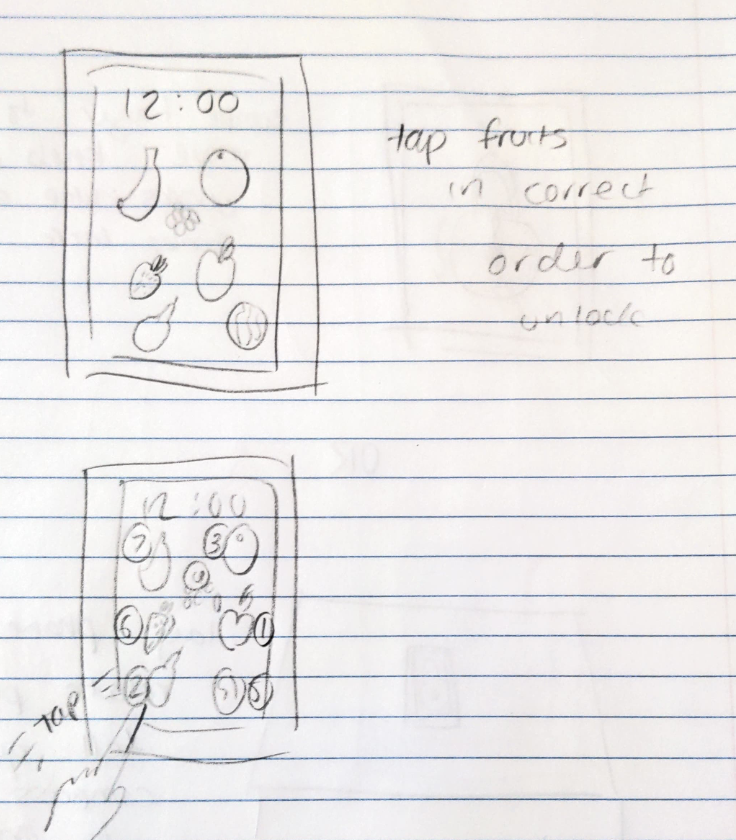 12:00
tap fruits
in correct
order to
unlock
12:00
7 3
6 1
2 5
tap